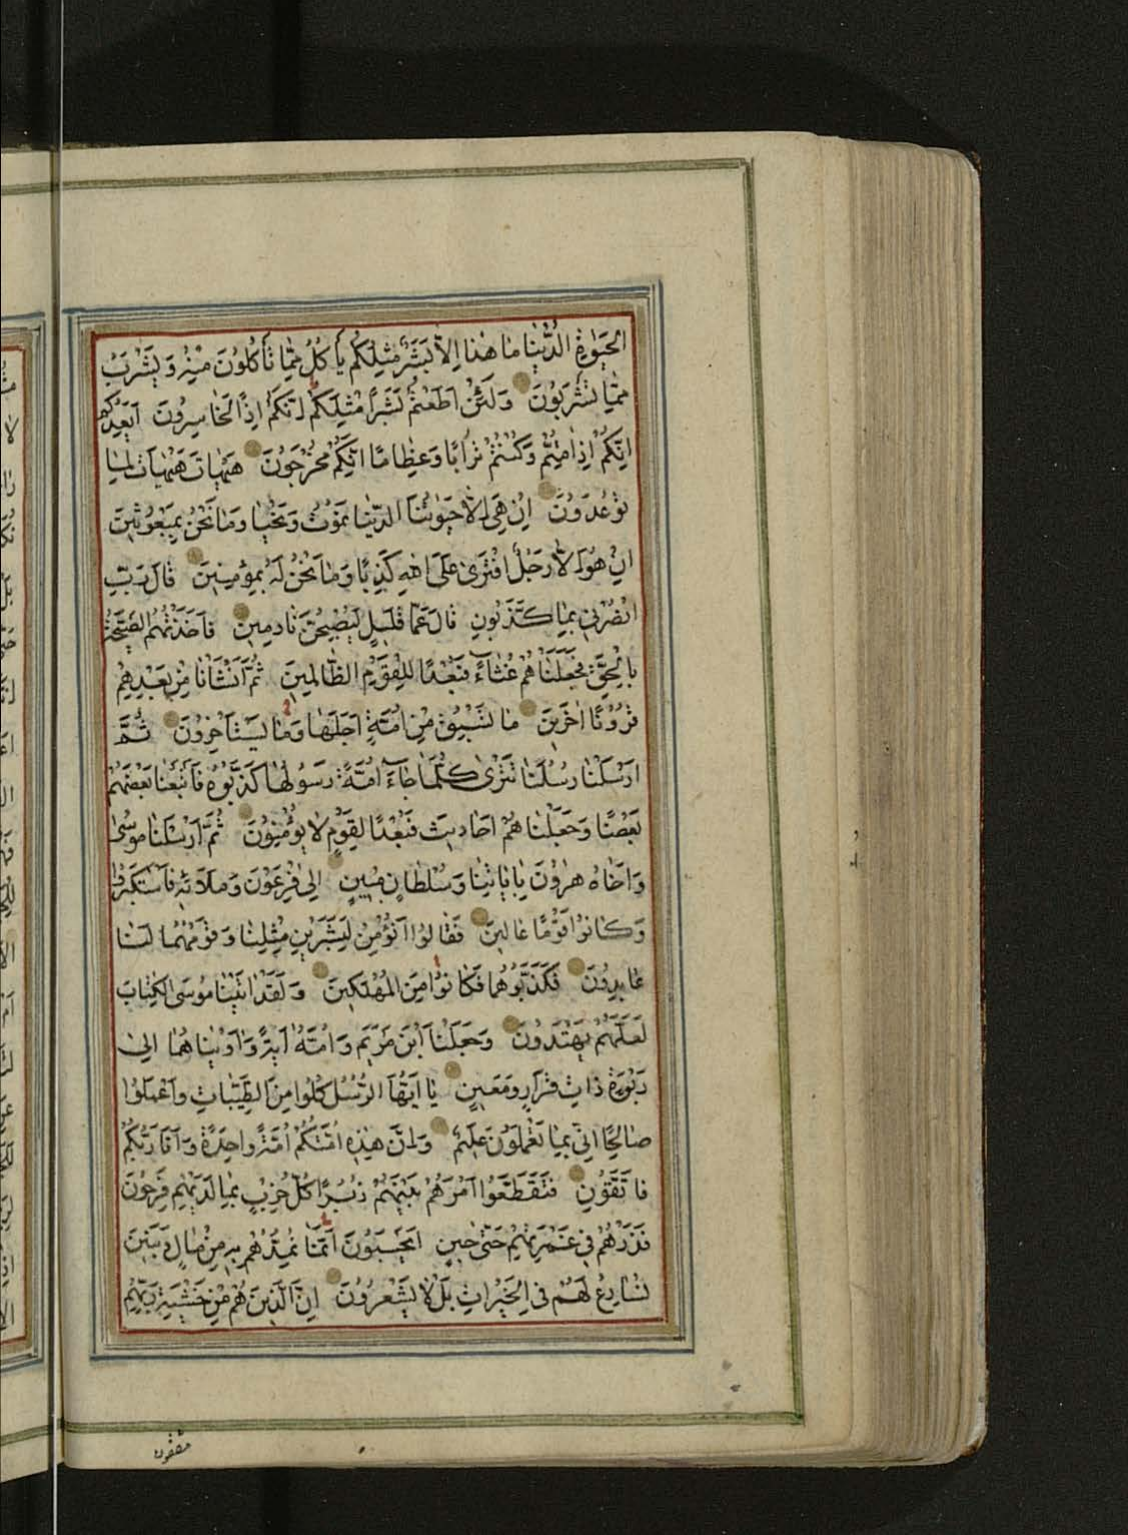 الْحَيٰوةِ الدُّنْيٰا مٰا هٰذٰا اِلّاٰ بَشَرٌ مِثْلُكُمْ يَأْكُلُ مِمّٰا تَأْكُلُونَ مِنْهُ وَيَشْرَبُ
مِمّٰا تَشْرَبُونَ وَلَئِنْ اَطَعْتُمْ بَشَرًا مِثْلَكُمْ اِنَّكُمْ اِذًا لَخٰاسِرُونَ اَيَعِدُكُمْ
اَنَّكُمْ اِذٰا مِتُّمْ وَكُنْتُمْ تُرٰابًا وَعِظٰامًا اَنَّكُمْ مُخْرَجُونَ هَيْهٰاتَ هَيْهٰاتَ لِمٰا
تُوعَدُونَ اِنْ هِيَ اِلّاٰ حَيٰوتُنَا الدُّنْيٰا نَمُوتُ وَنَحْيٰا وَمٰا نَحْنُ بِمَبْعُوثِينَ
اِنْ هُوَ اِلّاٰ رَجُلٌ افْتَرىٰ عَلَى اللهِ كَذِبًا وَمٰا نَحْنُ لَهُ بِمُؤْمِنِينَ قٰالَ رَبِّ
انْصُرْنِي بِمٰا كَذَّبُونِ قٰالَ عَمّٰا قَلِيلٍ لَيُصْبِحُنَّ نٰادِمِينَ فَاَخَذَتْهُمُ الصَّيْحَةُ
بِالْحَقِّ فَجَعَلْنٰاهُمْ غُثٰاءً فَبُعْدًا لِلْقَوْمِ الظّٰالِمِينَ ثُمَّ اَنْشَأْنٰا مِنْ بَعْدِهِمْ
قُرُونًا اٰخَرِينَ مٰا تَسْبِقُ مِنْ اُمَّةٍ اَجَلَهٰا وَمٰا يَسْتَأْخِرُونَ ثُمَّ
اَرْسَلْنٰا رُسُلَنٰا تَتْرىٰ كُلَّمٰا جٰاءَ اُمَّةً رَسُولُهٰا كَذَّبُوهُ فَاَتْبَعْنٰا بَعْضَهُمْ
بَعْضًا وَجَعَلْنٰاهُمْ اَحٰادِيثَ فَبُعْدًا لِقَوْمٍ لٰا يُؤْمِنُونَ ثُمَّ اَرْسَلْنٰا مُوسىٰ
وَاَخٰاهُ هٰرُونَ بِاٰيٰاتِنٰا وَسُلْطٰانٍ مُبِينٍ اِلىٰ فِرْعَوْنَ وَمَلَائِهِ فَاسْتَكْبَرُوا
وَكٰانُوا قَوْمًا عٰالِينَ فَقٰالُوا اَنُؤْمِنُ لِبَشَرَيْنِ مِثْلِنٰا وَقَوْمُهُمٰا لَنٰا
عٰابِدُونَ فَكَذَّبُوهُمٰا فَكٰانُوا مِنَ الْمُهْلَكِينَ وَلَقَدْ اٰتَيْنٰا مُوسَى الْكِتٰابَ
لَعَلَّهُمْ يَهْتَدُونَ وَجَعَلْنَا ابْنَ مَرْيَمَ وَاُمَّهُ اٰيَةً وَاٰوَيْنٰاهُمٰا اِلىٰ
رَبْوَةٍ ذٰاتِ قَرٰارٍ وَمَعِينٍ يٰا اَيُّهَا الرُّسُلُ كُلُوا مِنَ الطَّيِّبٰاتِ وَاعْمَلُوا
صٰالِحًا اِنِّي بِمٰا تَعْمَلُونَ عَلِيمٌ وَاِنَّ هٰذِهِ اُمَّتُكُمْ اُمَّةً وٰاحِدَةً وَاَنَا رَبُّكُمْ
فَاتَّقُونِ فَتَقَطَّعُوا اَمْرَهُمْ بَيْنَهُمْ زُبُرًا كُلُّ حِزْبٍ بِمٰا لَدَيْهِمْ فَرِحُونَ
فَذَرْهُمْ فِي غَمْرَتِهِمْ حَتّىٰ حِينٍ اَيَحْسَبُونَ اَنَّمٰا نُمِدُّهُمْ بِهِ مِنْ مٰالٍ وَبَنِينَ
نُسٰارِعُ لَهُمْ فِي الْخَيْرٰاتِ بَلْ لٰا يَشْعُرُونَ اِنَّ الَّذِينَ هُمْ مِنْ خَشْيَةِ رَبِّهِمْ
مشفقون